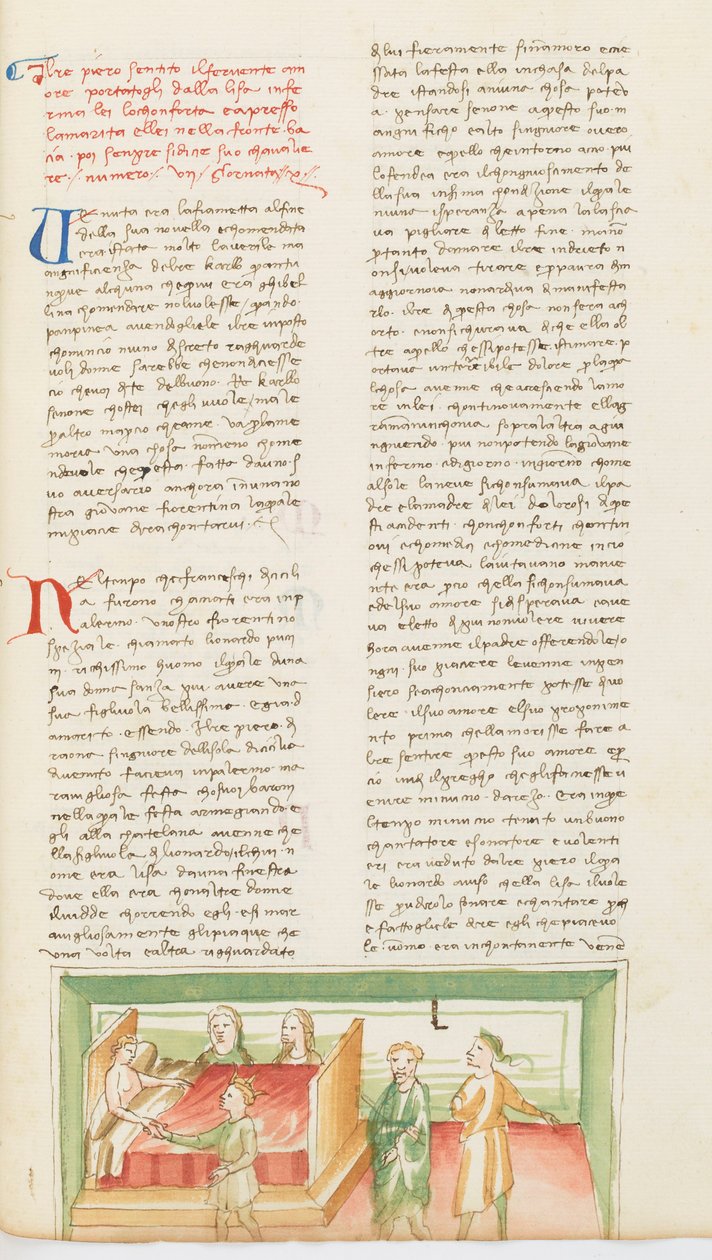 Ilre piero sentito ilfervente am
ore portatogli dalla lisa infe
rma lei lochonforta eapresso
lamarita ellei nella fronte ba
cia poi senpre sidicie suo chavalie
re numero vii giornata x
Venuta era lafiametta alfine
della sua novella echomendata
era istata molto lavirile ma
angnificienza delre karllo quantu
nque alchuna chequivi era ghibel
lina chomendare nolvolesse quando
panpinea avendogliele ilre inposto
chominciò niuno discreto raghuarde
voli donne sarebbe chenondiciesse
ciò chevoi dite delbuono Re karllo
senone chostei chegli vuole male
peraltro mapercio cheame va perlame
moria una chosa nommeno chome
ndevole chequesta fatta dauno s
uo aversario anchora inuna no
stra giovane fiorentina laquale
mipiacie dirachontarvi
Nel tempo chefranceschi dicicili
a furono chacciati era inp
alermo unostro fiorentino
speziale chiamato lionardo pucci
ni richissimo huomo ilquale duna
sua donna sanza più avere una
sua figliuola bellissima egià d
amarito essendo Ilre piero d
raona singniore dellisola dicicilia
divenuto facieva inpalermo ma
ravigliosa festa chosuoi baroni
nella quale festa armegiando e
gli alla chatelana avenne che
llafigliuola di lionardo ilchui n
ome era lisa dauna finestra
dove ella era chonaltre donne
ilvidde chorrendo egli esi mar
avigliosamente glipiaque che
una volta ealtra righuardato
di lui fieramente sinamorò eciè
ssata lafesta ella inchasa delpa
dre istandosi aniuna chosa poteva
a pensare senone aquesto suo m
angnificho ealto singniore overo
amore equello cheintorno aciò più
loffendea era ilchongnioscimento de
lla sua infima chondizione ilquale
niuna isperanza apena lalascia
va pigliare di lieto fine manò
pertanto damare ilre indrieto n
onsivoleva tirare epperpaura dim
aggiornoia nonardiva dimanifesta
rlo ilre di questa chosa nonsera ach
orto enonsichurava diche ella ol
tre aquello chessipotesse istimare p
ortava intoleribile dolore perlaqua
lchosa avenne cheacresciendo lamo
re inlei chontinovamente ellag
ramaninchonia sopralaltra agiu
ngniendo più nonpotendo lagiovane
infermò edigiorno ingiorno chome
alsole laneve sichonsumava ilpa
dre elamadre dilei dolorosi dique
sti acidenti chonchonforti chontin
ovi echomedici echomedicine inciò
chessipoteva laiutavano maniè
nte era perciò chella sichonsumava
edelsuo amore sidisperava eave
va eletto dipiù nonvolere vivere
hora avenne ilpadre offerendole o
ngni suo piaciere levenne inpen
siero seachonciamente potesse divo
lere ilsuo amore elsuo proponime
nto prima chellamorisse fare a
lre sentire questo suo amore eper
ciò undì ilpreghò cheglifaciesse v
enire minuccio darezo Era inque
ltempo minuccio tenuto unbuono
chantatore esonatore evolenti
eri era veduto dalre piero ilqua
le lionardo avisò chella lisa ilvole
sse perudirlo sonare echantare perch
e fattogliele dire egli chepiacievo
le uomo era inchontanente venne